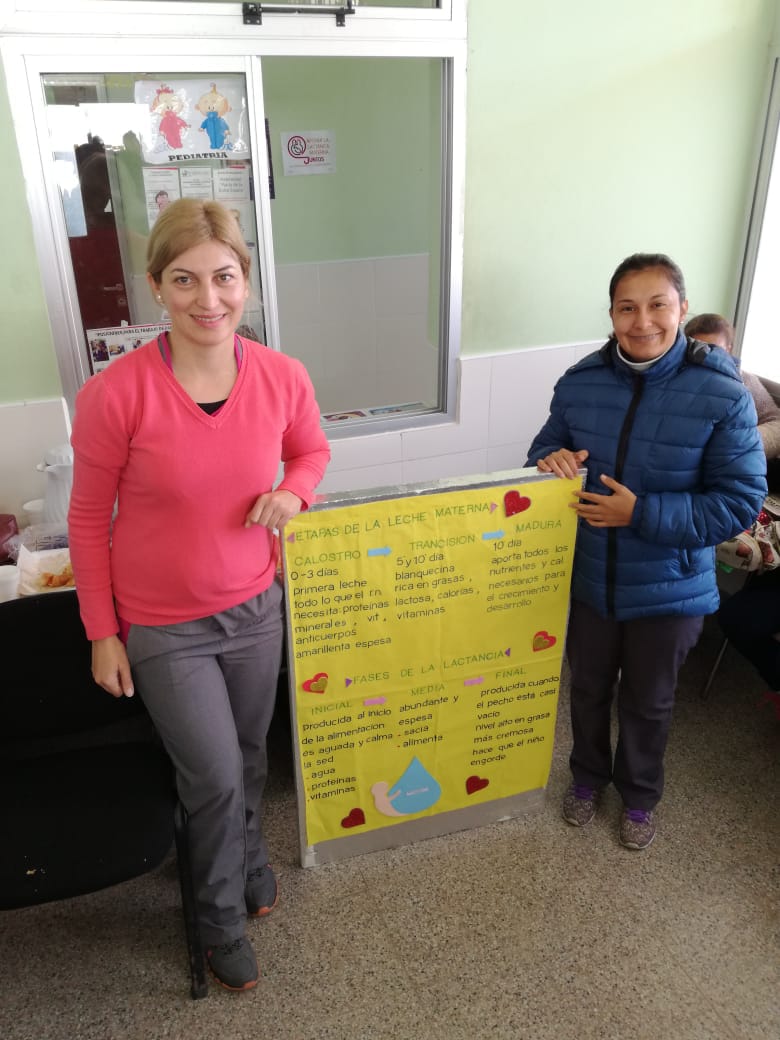 PEDIATRIA
APOYAR LA
LACTANCIA
MATERNA
JUNTOS
ETAPAS DE LA LECHE MATERNA
CALOSTRO
0-3 días
primera leche
todo lo que el r.n
necesita: proteínas
minerales, vit,
anticuerpos
amarillenta espesa
TRANCISION
5 y 10 día
blanquecina
rica en grasas,
lactosa, calorías,
vitaminas
MADURA
10 día
aporta todos los
nutrientes y cal
necesarios para
el crecimiento y
desarrollo
FASES DE LA LACTANCIA
INICIAL
producida al inicio
de la alimentacion
es aguada y calma
la sed
. agua
. proteínas
. vitaminas
MEDIA
abundante y
espesa
. sacia
. alimenta
FINAL
producida cuando
el pecho está casi
vacio
nivel alto en grasa
más cremosa
hace que el niño
engorde